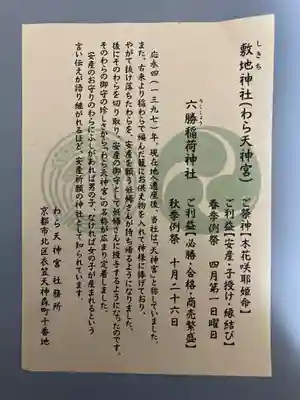 しきち
敷地神社(わら天神宮)
ご祭神【木花咲耶姫命】
ご利益【安産・子授け・縁結び】
春季例祭 四月第一日曜日
ろくしょう
六勝稲荷神社
ご利益【必勝・合格・商売繁盛】
秋季例祭 十月二十六日
応永四(一三九七)年、現在地へ遷座後、当社は「天神宮」と称していました。
また、古来より稲わらで編んだ籠にお供え物を入れて神様に捧げており、
やがて抜け落ちたわらを、安産を願う妊婦さんが持ち帰るようになりました。
後にそのわらを切り取り、安産の御守として妊婦さんに授与するようになったのです。
そのわらの御守の珍しさから「わら天神宮」の名称が広まり定着しました。
安産のお守りのわらにふしがあれば男の子、なければ女の子が産まれるという
言い伝えが語り継がれるほど、安産祈願の神社として知られています。
わら天神宮 社務所
京都市北区衣笠天神森町十番地